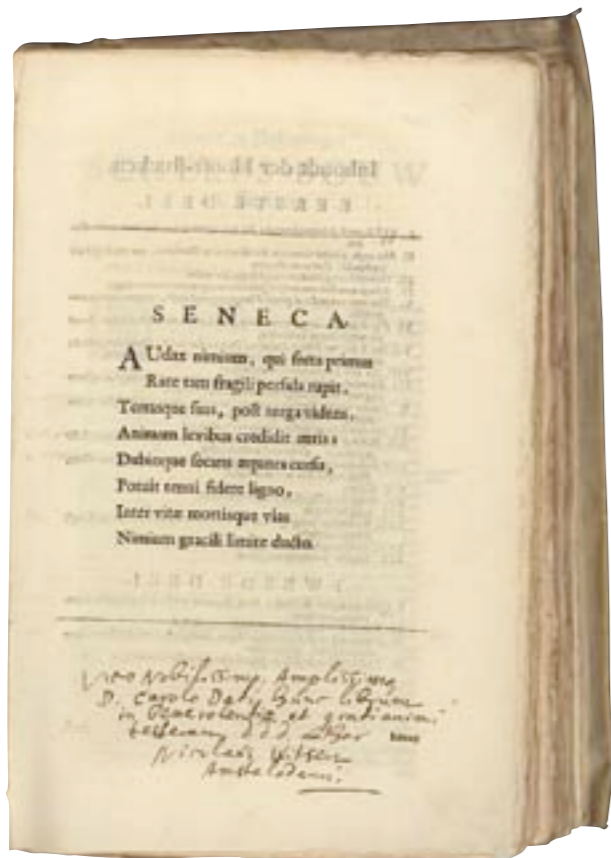 SENECA.
AUdax nimium, qui freta primus
Rate tam fragili perfida rupit,
Terrasque suas, post terga videns,
Animam levibus credidit auris;
Dubioque secans æquora cursu,
Potuit tenui fidere ligno,
Inter vitæ mortisque vias
Nimium gracili limite ducto.
Viro Nobilissimo Amplissimo
D. Carolo Dati hunc librum
in benevolentiæ et grati animi
tesseram ddd
Nicolaus Witsen
Amstelodami.